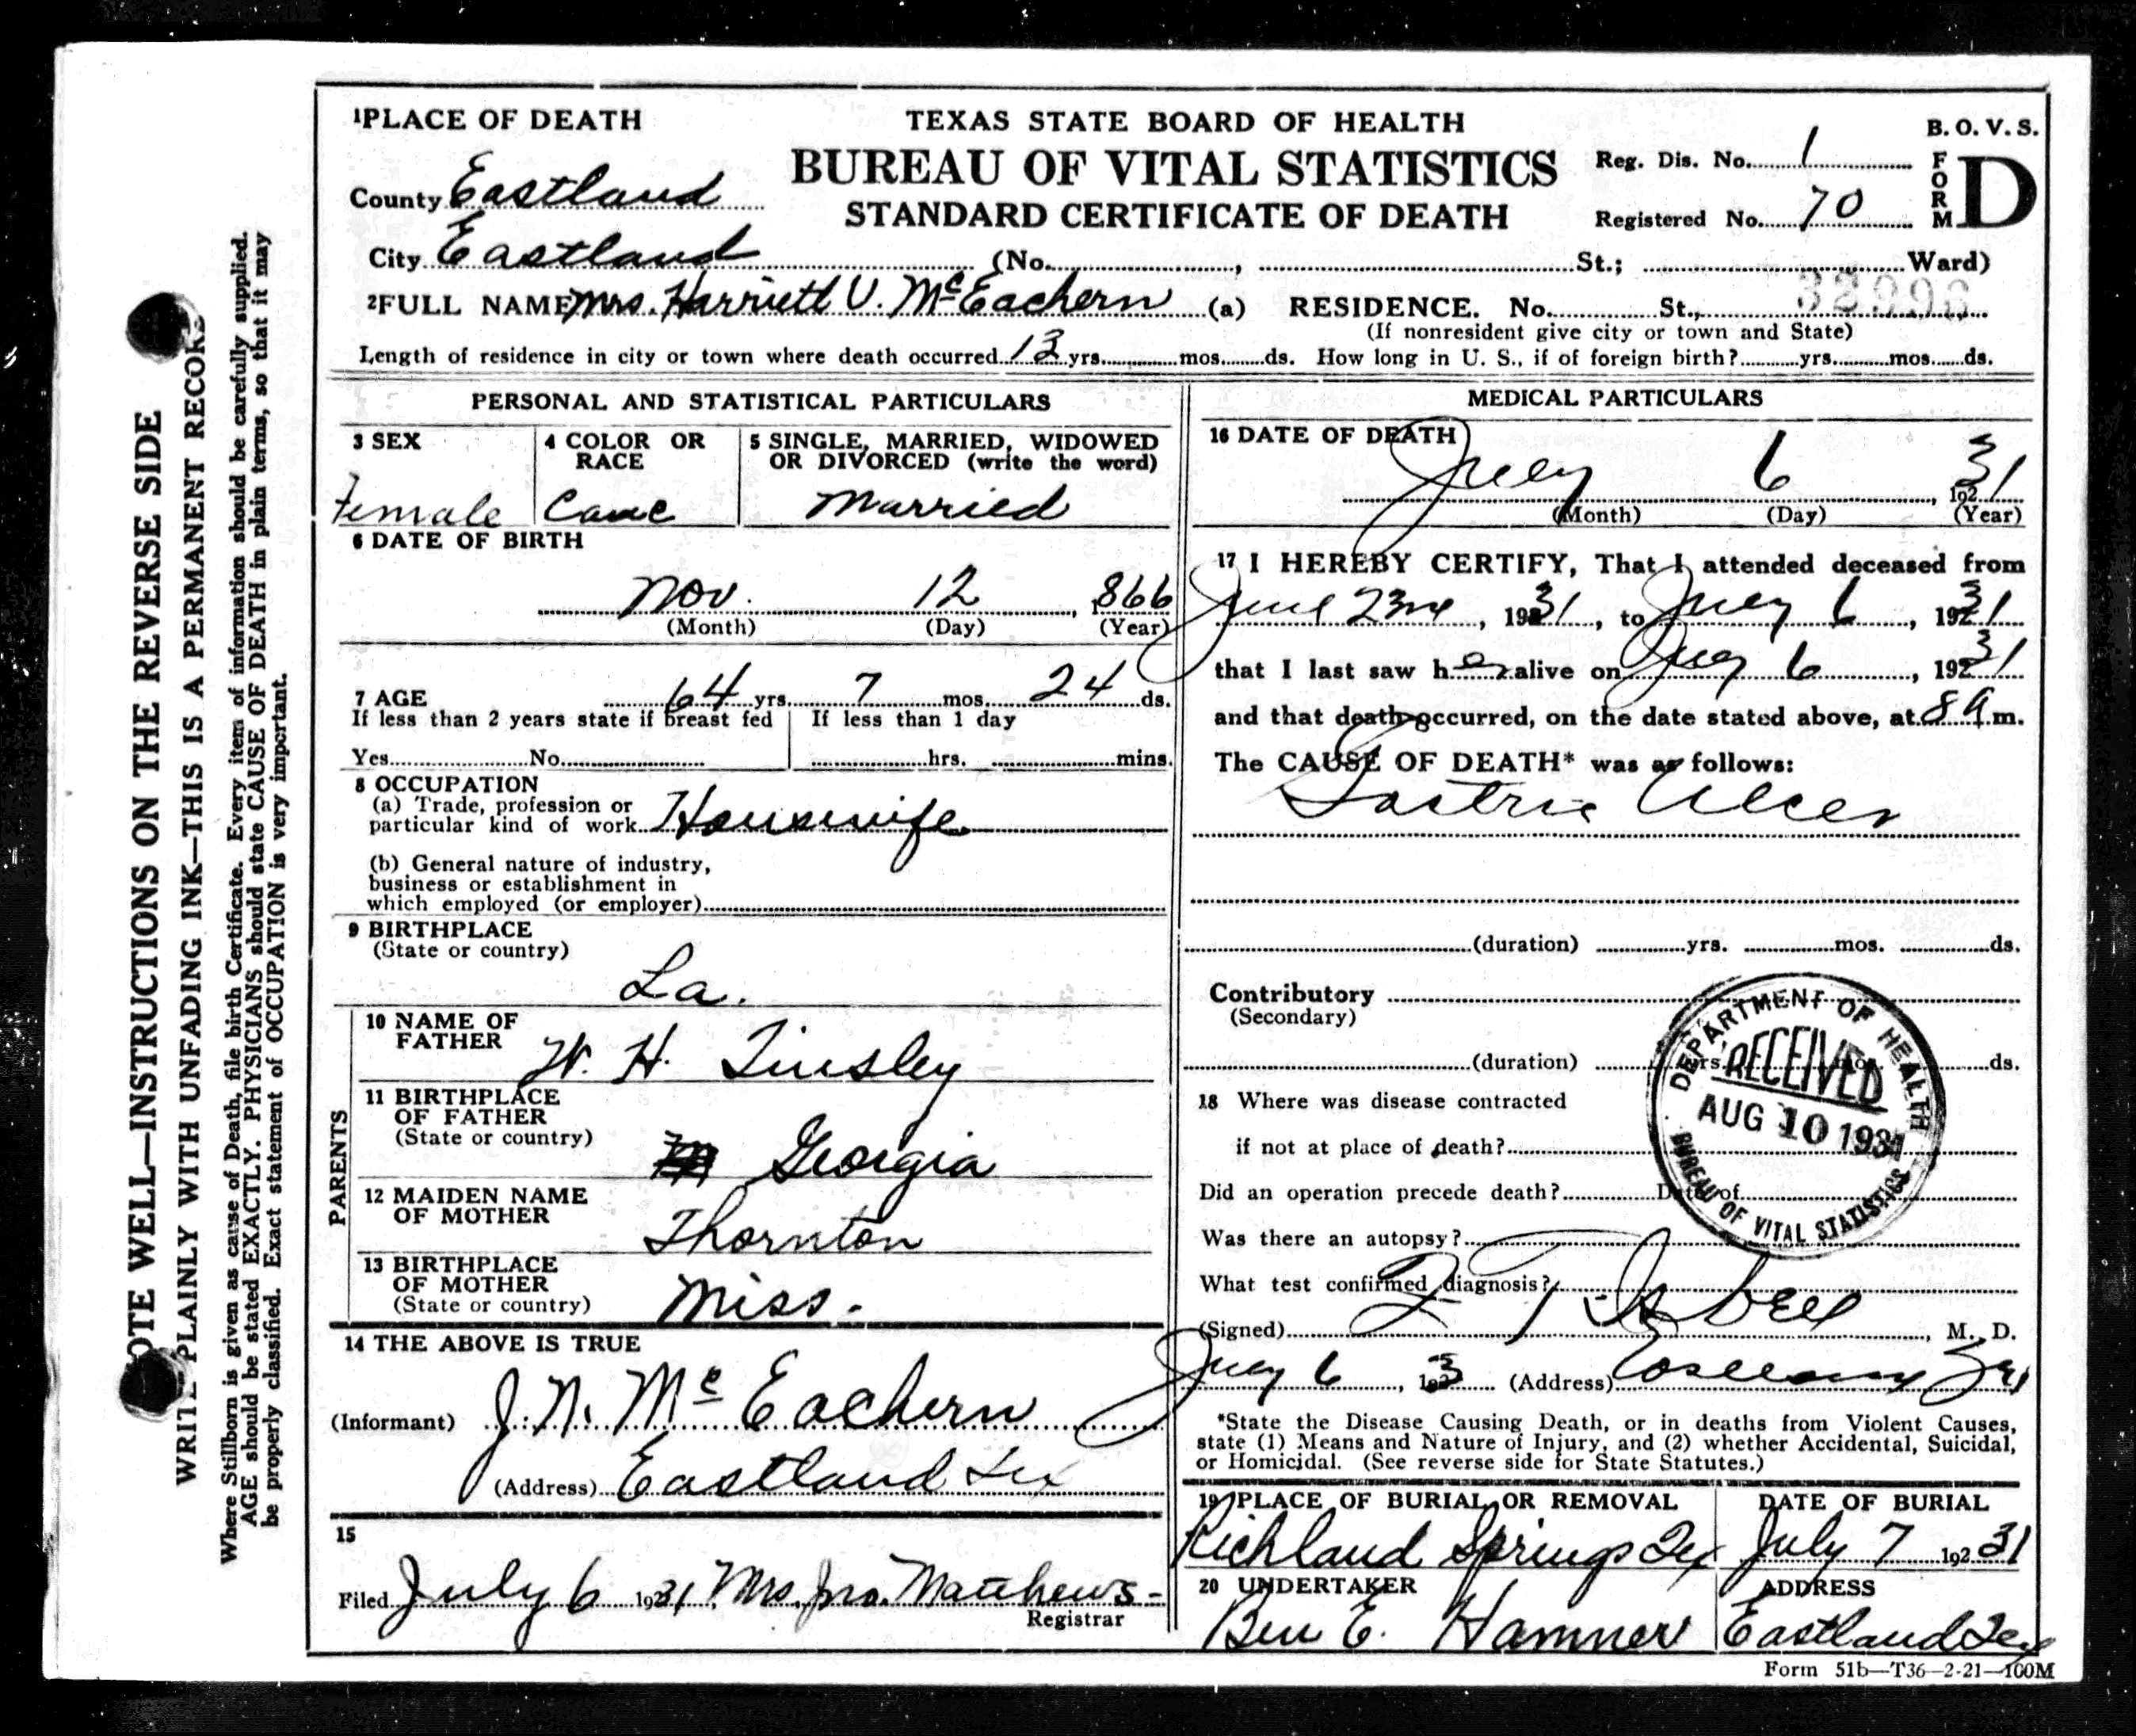 OTE WELL—INSTRUCTIONS ON THE REVERSE SIDE
WRITE PLAINLY WITH UNFADING INK—THIS IS A PERMANENT RECORD
Where Stillborn is given as cause of Death, file birth Certificate. Every item of information should be carefully supplied.
AGE should be stated EXACTLY. PHYSICIANS should state CAUSE OF DEATH in plain terms, so that it may
be properly classified. Exact statement of OCCUPATION is very important.
1 PLACE OF DEATH
TEXAS STATE BOARD OF HEALTH
BUREAU OF VITAL STATISTICS
STANDARD CERTIFICATE OF DEATH
Reg. Dis. No. 1
Registered No. 70
B. O. V. S.
FORM D
County Eastland
City Eastland (No. , St.; Ward)
32996
2 FULL NAME Mrs. Harriett V. McEachern (a) RESIDENCE. No. St.,
(If nonresident give city or town and State)
Length of residence in city or town where death occurred 13 yrs. mos. ds. How long in U. S., if of foreign birth? yrs. mos. ds.
PERSONAL AND STATISTICAL PARTICULARS
3 SEX
Female
4 COLOR OR RACE
Cauc
5 SINGLE, MARRIED, WIDOWED
OR DIVORCED (write the word)
Married
6 DATE OF BIRTH
Nov. 12, 866
(Month) (Day) (Year)
7 AGE 64 yrs. 7 mos. 24 ds.
If less than 2 years state if breast fed If less than 1 day
Yes No hrs. mins.
8 OCCUPATION
(a) Trade, profession or
particular kind of work Housewife
(b) General nature of industry,
business or establishment in
which employed (or employer)
9 BIRTHPLACE
(State or country)
La.
PARENTS
10 NAME OF
FATHER W. H. Tinsley
11 BIRTHPLACE
OF FATHER
(State or country) Georgia
12 MAIDEN NAME
OF MOTHER Thornton
13 BIRTHPLACE
OF MOTHER
(State or country) Miss.
14 THE ABOVE IS TRUE
(Informant) J. N. McEachern
(Address) Eastland Tex
15
Filed July 6 1931, Mrs. Jno. Matthews -
Registrar
MEDICAL PARTICULARS
16 DATE OF DEATH
July 6, 192 31
(Month) (Day) (Year)
17 I HEREBY CERTIFY, That I attended deceased from
June 23rd, 1931, to July 6, 1931
that I last saw her alive on July 6, 1931
and that death occurred, on the date stated above, at 8 A m.
The CAUSE OF DEATH* was as follows:
Gastric Ulcer
(duration) yrs. mos. ds.
Contributory
(Secondary)
(duration) yrs. mos. ds.
DEPARTMENT OF HEALTH
RECEIVED
AUG 10 1931
BUREAU OF VITAL STATISTICS
18 Where was disease contracted
if not at place of death?
Did an operation precede death? Date of
Was there an autopsy?
What test confirmed diagnosis?
(Signed) M. D.
July 6, 193 (Address)
*State the Disease Causing Death, or in deaths from Violent Causes,
state (1) Means and Nature of Injury, and (2) whether Accidental, Suicidal,
or Homicidal. (See reverse side for State Statutes.)
19 PLACE OF BURIAL OR REMOVAL
Richland Springs Tex
DATE OF BURIAL
July 7 192 31
20 UNDERTAKER
Ben E. Hamner
ADDRESS
Eastland Tex
Form 51b—T36—2-21—100M